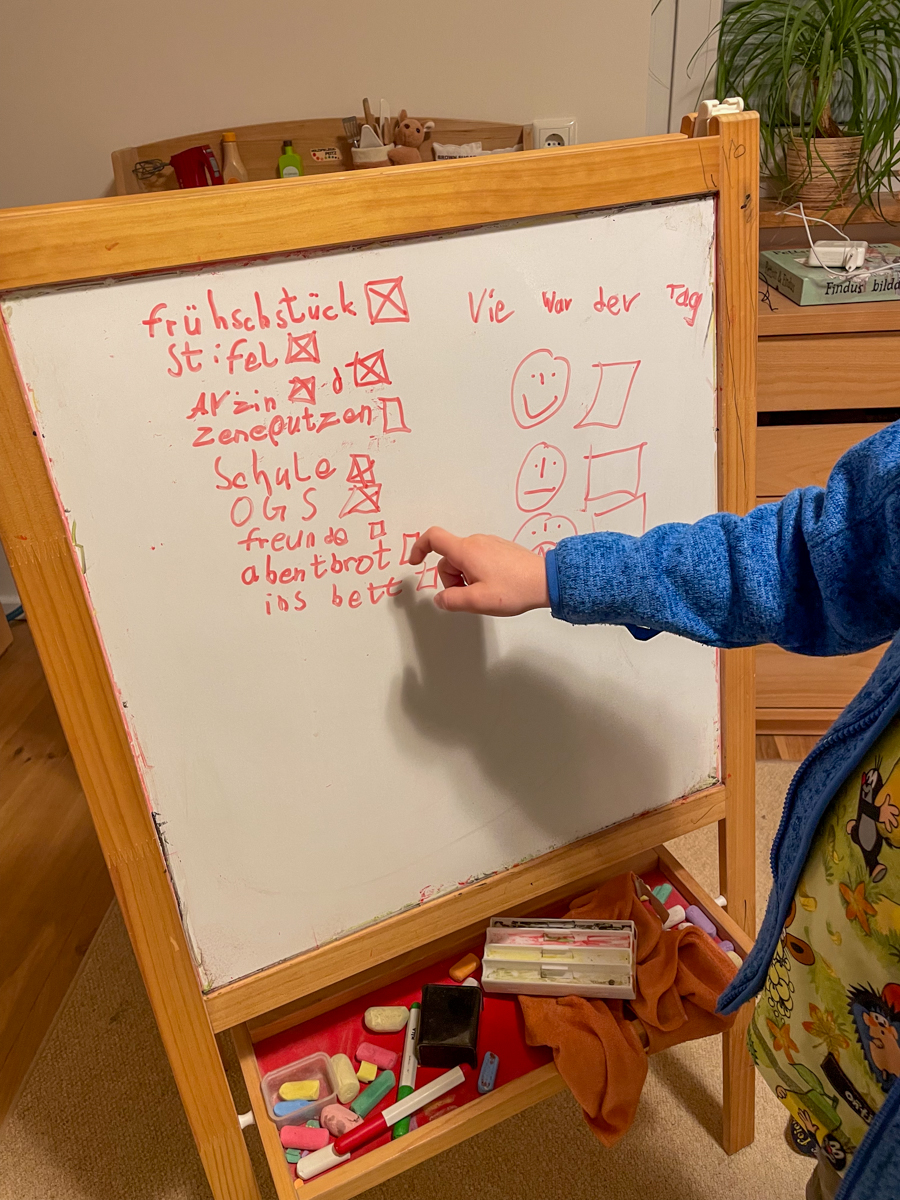 frühschstück
Stifel
Arzin d
Zeneputzen
Schule
OGS
freunde
abentbrot
ins bett
Vie war der Tag
Findus